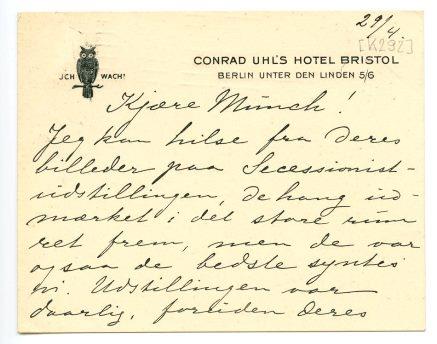 29/4.
[K292]
JCH WACH!
CONRAD UHL'S HOTEL BRISTOL
BERLIN UNTER DEN LINDEN 5/6
Kjære Munch!
Jeg kan hilse fra Deres
billeder paa Secessionist-
udstillingen, de hang ud-
mærket i det store rum
ret frem, men de var
ogsaa de bedste syntes
vi. Udstillingen var
daarlig, foruden Deres